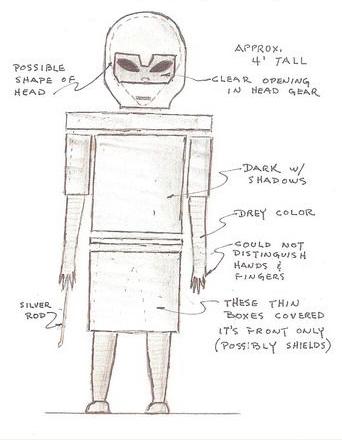 POSSIBLE
SHAPE OF
HEAD
APPROX.
4' TALL
CLEAR OPENING
IN HEAD GEAR
DARK W/
SHADOWS
DREY COLOR
COULD NOT
DISTINGUISH
HANDS &
FINGERS
SILVER
ROD
THESE THIN
BOXES COVERED
IT'S FRONT ONLY
(POSSIBLY SHIELDS)